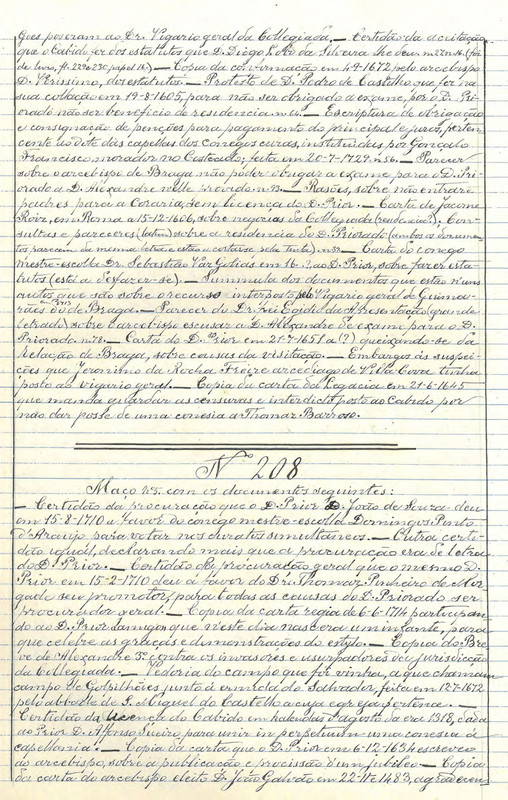 goes poseram ao Dr. Vigario geral da Collegiada. — Certidão da aceitação
que o Cabido fez dos estatutos que D. Diogo Lobo da Silveira lhe deu n.
do livro, fl. 229 e 230, papel
— Copia da confirmação em 4-9-1672 pelo arcebispo
D. Verissimo, dos estatutos. — Protesto de D. Pedro de Castilho que fez na
sua collação em 19-8-1605, para não ser obrigado a exame, por o D. Pri-
orado não ser beneficio de residencia n. — Escriptura de obrigação
e consignação de penções para pagamento do principal e juros, perten-
cente ao dote das capellas dos conegos curas, instituidas por Gonçalo
Francisco morador no Castello; feita em 20-7-1729. n. 56. — Parecer
sobre o arcebispo de Braga não poder obrigar a exame para o D. Pri-
orado a D. Alexandre nelle provido. n. 93. — Rasões, sobre não entrar
padres para a Coraria, sem licença do D. Prior. — Carta de Jacome
Roiz, em Roma a 15-12-1606, sobre negocios da Collegiada (residencia?). Con-
sultas e pareceres (latim) sobre a residencia do D. Priorado (ambos os documen-
tos parecem da mesma letra e estão a cortar-se pela tinta). n. 32 — Carta do conego
mestre-escolla Dr. Sebastião Vaz Golias em 16-?, ao D. Prior, sobre fazer esta-
tutos (está a desfazer-se). — Summula dos documentos que estão n'uns
autos que são sobre o recurso interposto pelo Vigario geral de Guima-
rães do de Braga. — Parecer do Dr. Frei Egidio da Apresentação (grande
letrado) sobre o arcebispo escusar a D. Alexandre do exame para o D.
Priorado n. 78. — Carta do D. Prior em 21-7-1651 a (?) queixando-se da
Relação de Braga, sobre causas da visitação. — Embargos ás suspei-
ções que Jeronimo da Rocha Freire arcediago de Villa Cova tinha
posto ao vigario geral. — Copia de carta da Legacia em 21-6-1645
que manda guardar as censuras e interdicto posto ao Cabido por
não dar posse de uma conesia a Thomaz Barroso.
Nº 208
Maço n.º 5. com os documentos seguintes:
— Certidão da procuração que o D. Prior D. João de Souza deu
em 15-8-1710 a favor do conego mestre-escolla Domingos Pinto
d'Araujo para votar nos curatos simultaneos. — Outra certi-
dão igual, declarando mais que a procuração era de letra
do D. Prior. — Certidão da procuração geral que o mesmo D.
Prior em 15-2-1710 deu a favor do Dr. Thomaz Pinheiro de Mor-
gade seu promotor, para todas as causas do D. Priorado ser
procurador geral. — Copia da carta regia de 6-6-1714 participan-
do ao D. Prior D. amigo que n'este dia nascera um infante, para
que celebre as graças e demonstrações do estylo. — Copia do Bre-
ve de Alexandre 3.º contra os invasores e usurpadores da jurisdicção
da Collegiada. — Vedoria do campo que foi vinha, a que chamam
campo de Godrilhões, junto á ermida do Salvador, feita em 12-7-1672
pelo abbade de S. Miguel do Castello a cuja egreja pertence. —
Certidão da licença do Cabido em kalendas d'agosto da era 1318, dada
ao Prior D. Affonso para unir in perpetuum uma conesia á
capellania. — Copia da carta que o D. Prior em 6-12-1634 escreveu
ao arcebispo, sobre a publicação e procissão d'um jubileo — Copia
da carta do arcebispo eleito D. João Galvão em 22-11-1483, agradecen-